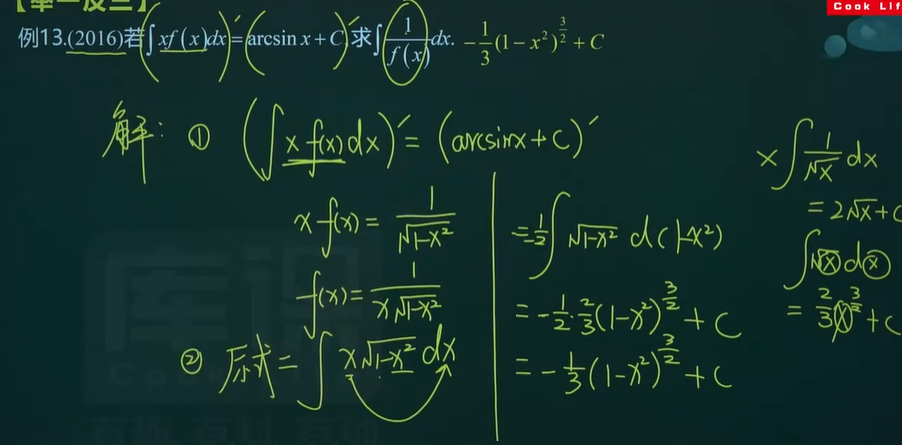 【举一反三】
Cook Lif
例13.(2016)若(∫xf(x)dx)′=(arcsin x+C)′求∫(1/f(x))dx. -1/3(1-x²)^(3/2)+C
解: ① (∫x f(x)dx)′=(arcsinx+C)′
x f(x)= 1/√(1-x²)
f(x)= 1/(x√(1-x²))
② 原式=∫x√(1-x²) dx
=½∫√(1-x²) d(1-x²)
=-½·⅔(1-x²)^(3/2)+C
=-⅓(1-x²)^(3/2)+C
x∫1/√x dx
=2√x+C
∫√x dx
=⅔x^(3/2)+C